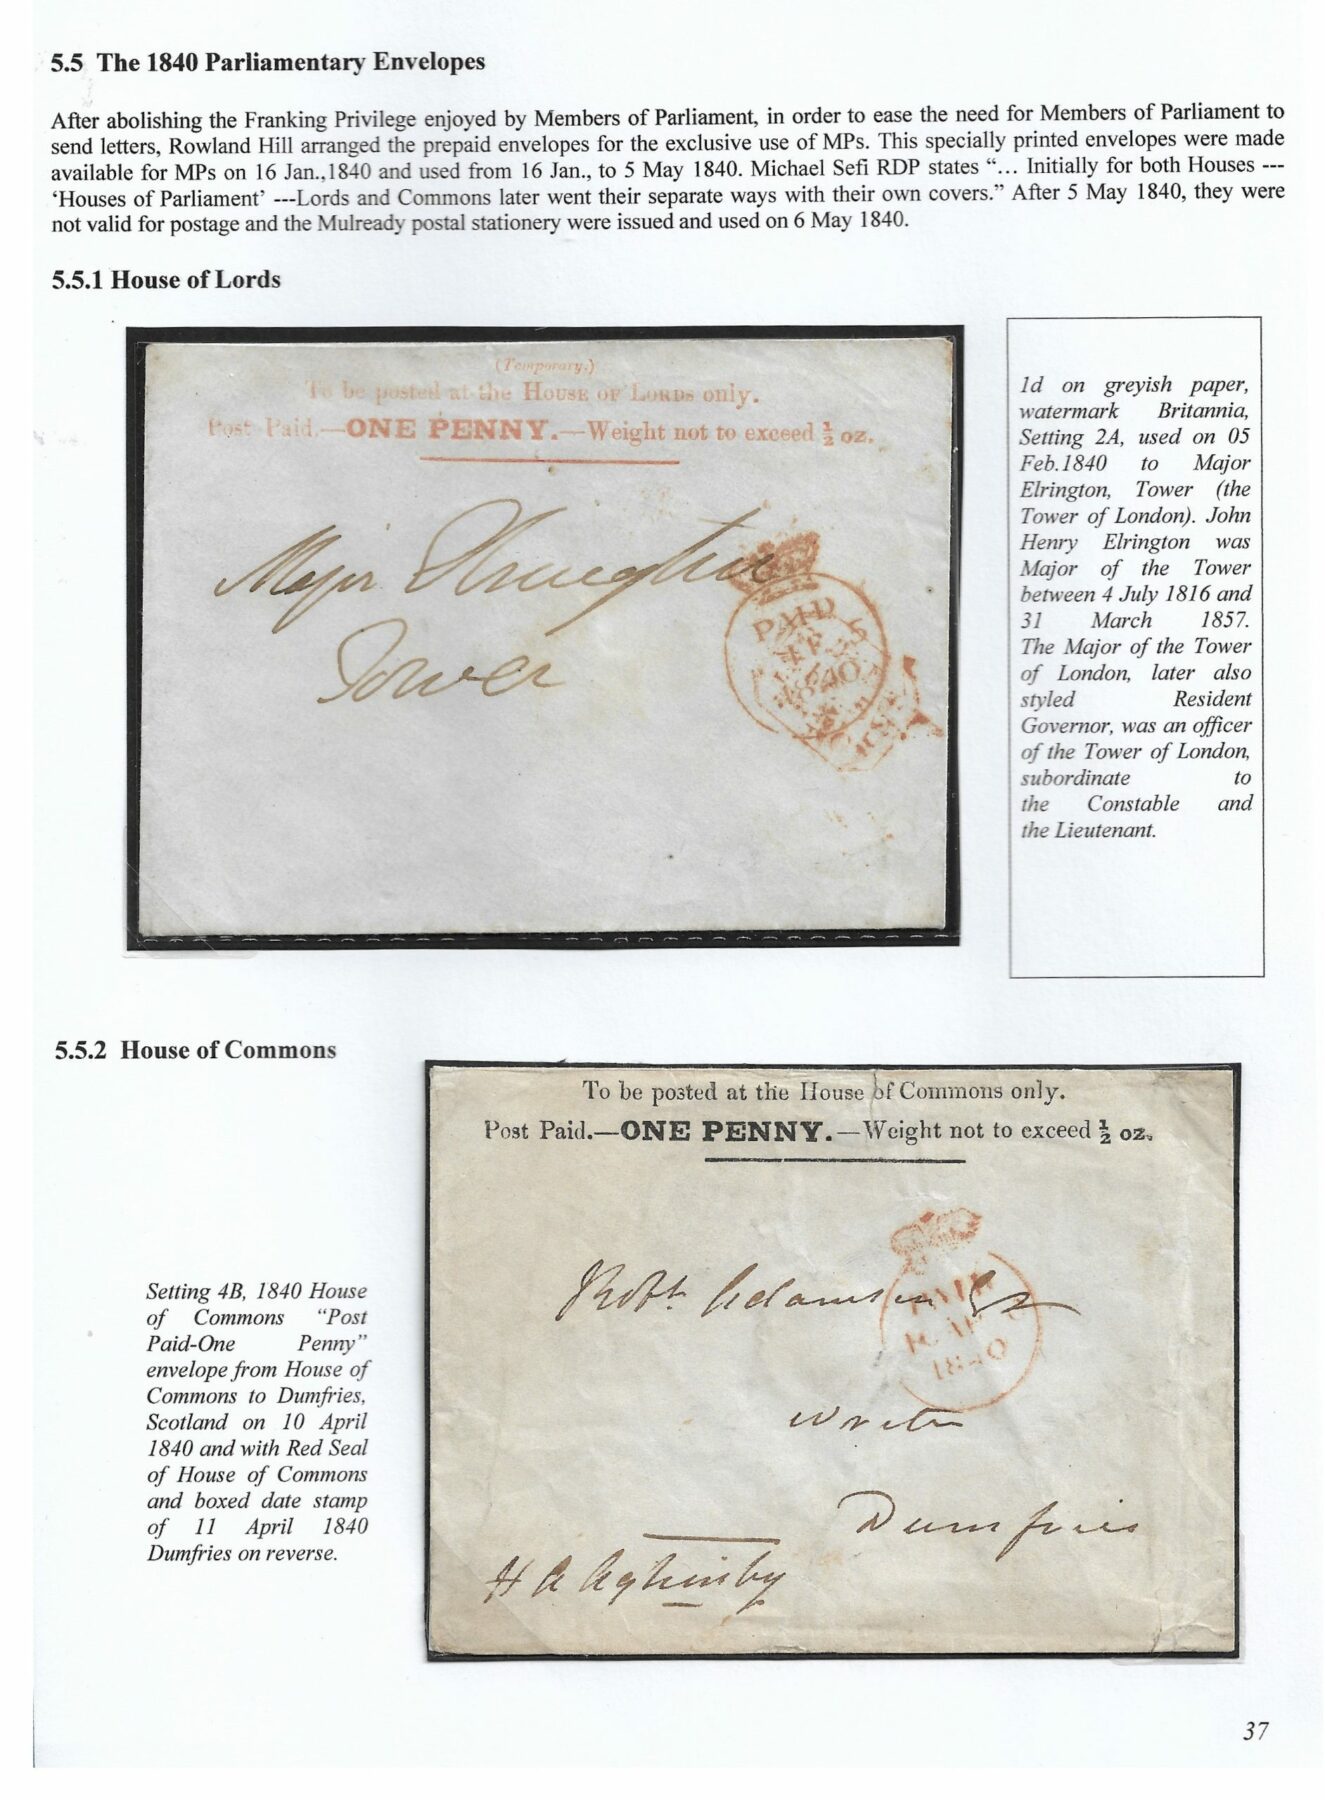 5.5 The 1840 Parliamentary Envelopes
After abolishing the Franking Privilege enjoyed by Members of Parliament, in order to ease the need for Members of Parliament to
send letters, Rowland Hill arranged the prepaid envelopes for the exclusive use of MPs. This specially printed envelopes were made
available for MPs on 16 Jan.,1840 and used from 16 Jan., to 5 May 1840. Michael Sefi RDP states “... Initially for both Houses ---
‘Houses of Parliament’ ---Lords and Commons later went their separate ways with their own covers.” After 5 May 1840, they were
not valid for postage and the Mulready postal stationery were issued and used on 6 May 1840.
5.5.1 House of Lords
(Temporary.)
To be posted at the HOUSE OF LORDS only.
Post Paid.—ONE PENNY.—Weight not to exceed ½ oz.
Major Elrington
Tower
PAID
FE 5
1840
1d on greyish paper,
watermark Britannia,
Setting 2A, used on 05
Feb.1840 to Major
Elrington, Tower (the
Tower of London). John
Henry Elrington was
Major of the Tower
between 4 July 1816 and
31 March 1857.
The Major of the Tower
of London, later also
styled Resident
Governor, was an officer
of the Tower of London,
subordinate to
the Constable and
the Lieutenant.
5.5.2 House of Commons
To be posted at the House of Commons only.
Post Paid.—ONE PENNY.—Weight not to exceed ½ oz.
Robt. Adamson Esq
PAID
10 AP
1840
Writer
Dumfries
H A Aglionby
Setting 4B, 1840 House
of Commons “Post
Paid-One Penny”
envelope from House of
Commons to Dumfries,
Scotland on 10 April
1840 and with Red Seal
of House of Commons
and boxed date stamp
of 11 April 1840
Dumfries on reverse.
37